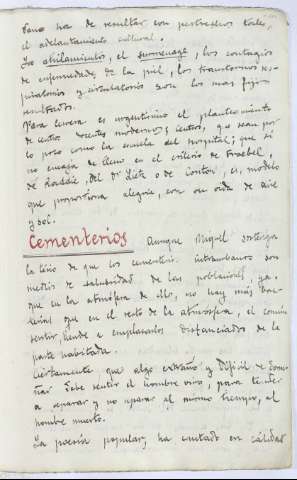 ha de resultar con
el adelantamiento cultural.
Los ahilamientos, el surmenage, los contagios
de enfermedades de la piel, los transtornos res-
piratorios y circulatorios son los mas fijos
resultados.
Para Cuenca es urgentisimo el planteamiento
de centros docentes modernos y sentos, que sean por
lo poco como la escuela del hospital; que si
no encaja de lleno en el criterio de Froebel,
de, del Dr o de Contor, es, modelo
que proporciona alegria, con su oida de aire
y sol.
Cementerios Aunque Miquel sostenga
la tésis de que los cementerios intraurbanos son
medios de salubridad de las poblaciones, ya
que en la atmósfera de ellos, no hay más bac-
terias que en el resto de la atmosfera, el comun
sentir, tiende a emplazarlos distanciados de la
parte habitada.
Ciertamente que algo extraño y dificil de domi-
ñar debe sentir el hombre vivo, para tender
a separar y no separar al mismo tiempo, al
hombre muerto.
La poesia popular, ha cantado en cálidas